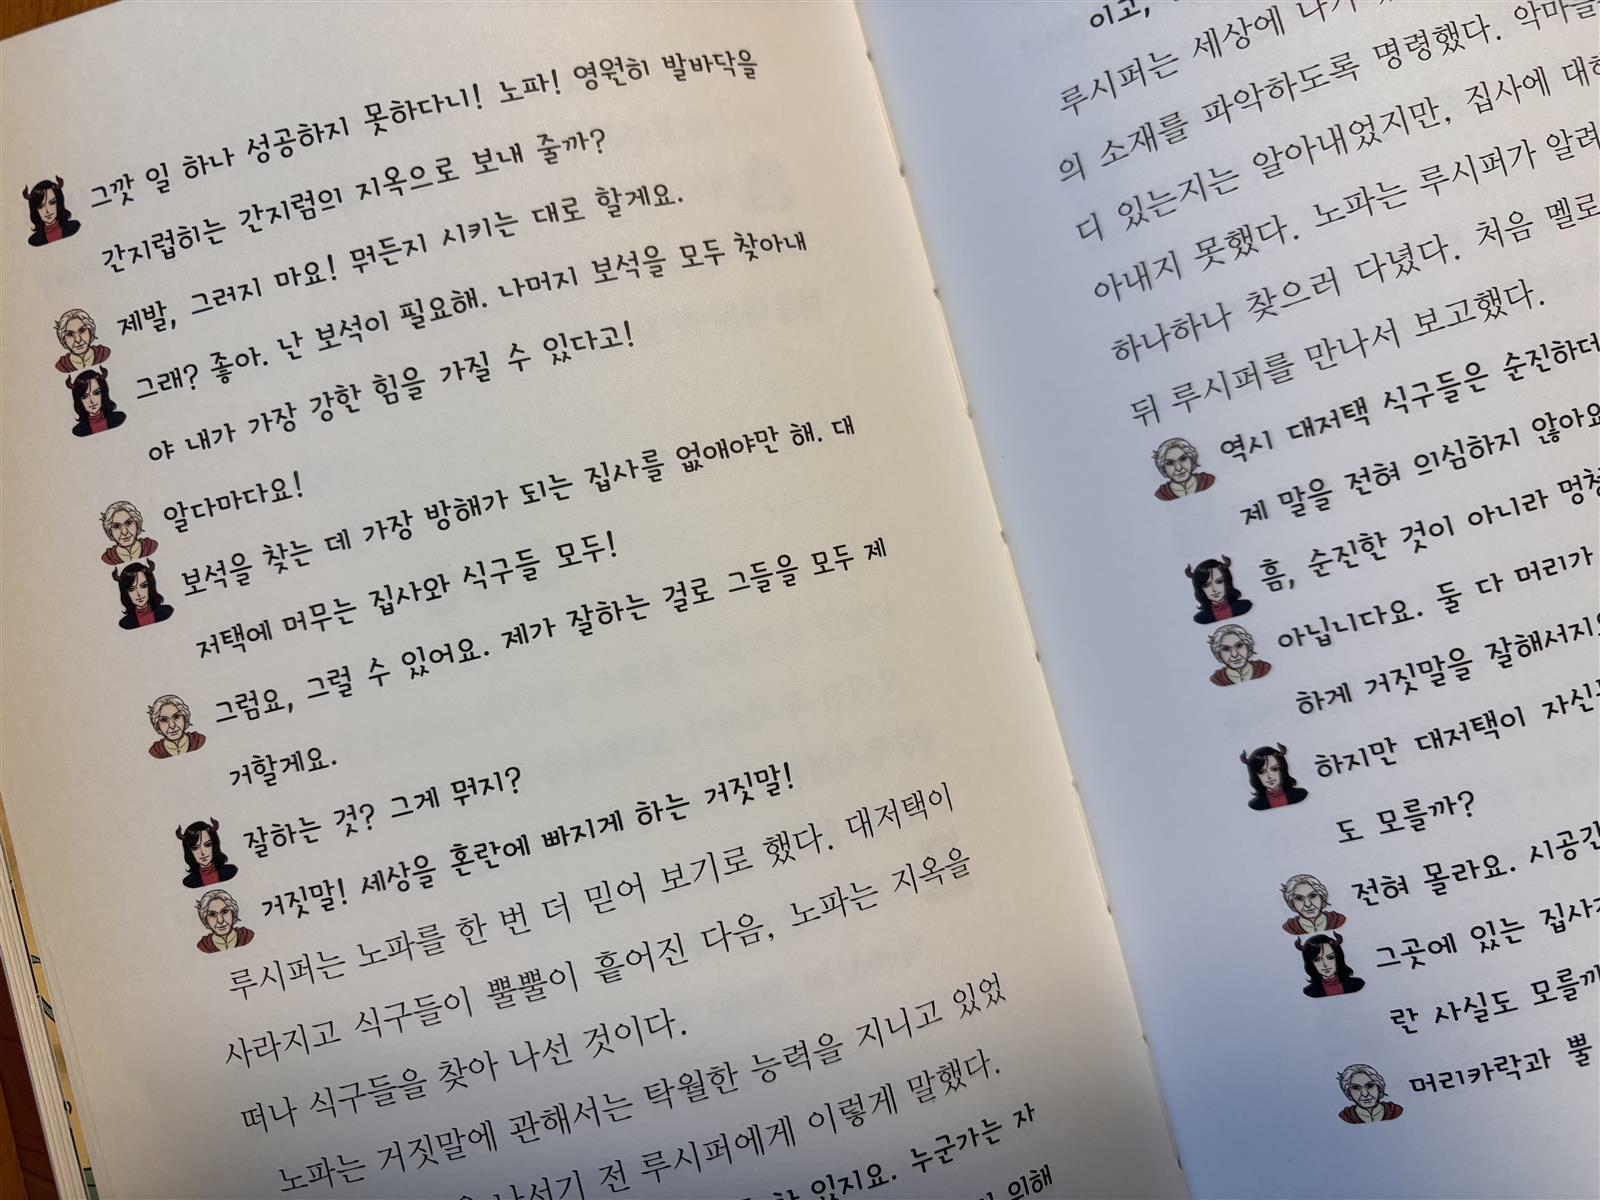 그깟 일 하나 성공하지 못하다니! 노파! 영원히 발바닥을
간지럽히는 간지럼의 지옥으로 보내 줄까?
제발, 그러지 마요! 뭐든지 시키는 대로 할게요.
그래? 좋아. 난 보석이 필요해. 나머지 보석을 모두 찾아내
야 내가 가장 강한 힘을 가질 수 있다고!
알다마다요!
보석을 찾는 데 가장 방해가 되는 집사를 없애야만 해. 대
저택에 머무는 집사와 식구들 모두!
그럼요, 그럴 수 있어요. 제가 잘하는 걸로 그들을 모두 제
거할게요.
잘하는 것? 그게 뭐지?
거짓말! 세상을 혼란에 빠지게 하는 거짓말!
루시퍼는 노파를 한 번 더 믿어 보기로 했다. 대저택이
사라지고 식구들이 뿔뿔이 흩어진 다음, 노파는 지옥을
떠나 식구들을 찾아 나선 것이다.
노파는 거짓말에 관해서는 탁월한 능력을 지니고 있었
나서기 전 루시퍼에게 이렇게 말했다.
있지요. 누군가는 자
위해
이고,
루시퍼는 세상에 나가
의 소재를 파악하도록 명령했다. 악마들
디 있는지는 알아내었지만, 집사에 대해
아내지 못했다. 노파는 루시퍼가 알려
하나하나 찾으러 다녔다. 처음 멜로
뒤 루시퍼를 만나서 보고했다.
역시 대저택 식구들은 순진하더
제 말을 전혀 의심하지 않아요
흠, 순진한 것이 아니라 멍청
아닙니다요. 둘 다 머리가
하게 거짓말을 잘해서지요
하지만 대저택이 자신
도 모를까?
전혀 몰라요. 시공간
그곳에 있는 집사가
란 사실도 모를까
머리카락과 뿔